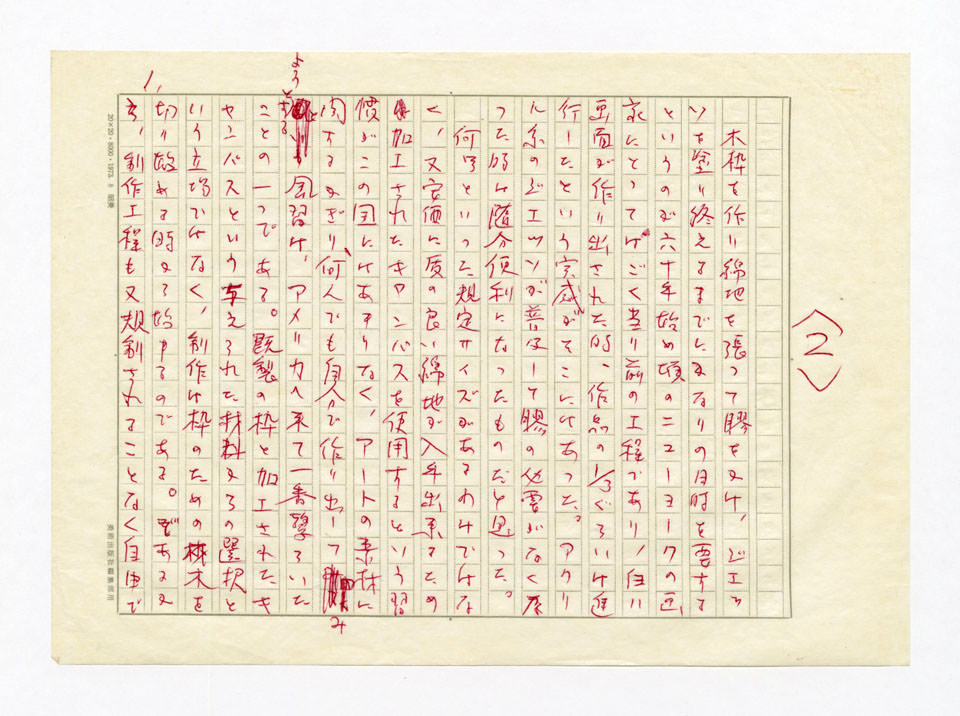 2
木枠を作り綿地を張って膠をぬけ、ジエッ
ソを塗り終えるまでにかなりの日時を要する
というのが六十年始め頃のニューヨークの画
家にとってはごく当り前の工程であり、白い
画面が作り出された時、作品の1/3ぐらいは進
行したという実感がそこにはあった。アクリ
ル系のジエッソが普及して膠の必要がなく
った時は随分便利になったものだと思った。
何号といった規定サイズがあるわけではな
く、又安価に質の良い綿地が入手出来るため
加工されたキャンバスを使用するという習
慣がこの国にはあまりなく、アートの素材に
関するかぎり、何人でも自分で作り出して み
ようとする風習は、アメリカへ来て一番驚ろいた
ことの一つである。既製の枠と加工されたキ
ャンバスという与えられた材料からの選択と
いう立場ではなく、制作は枠のための材木を
切り始める時から始まるのである。であるか
ら、制作工程も又規制されることなく自由で
20×20・8000・1973. 8
美術出版社編集部用